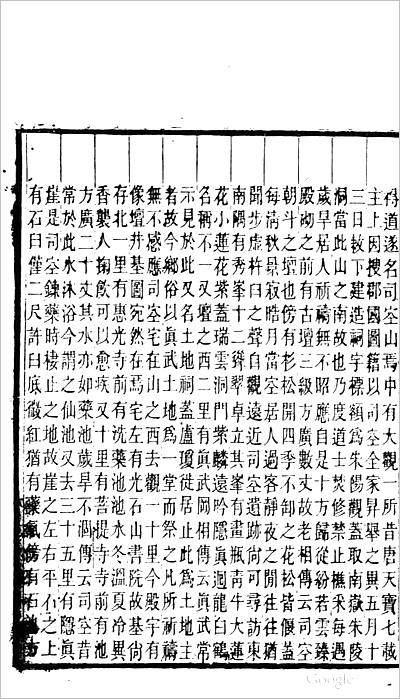 得道遂名司空山焉中有大觀一所昔唐天寶七載
主上因搜郡國圖籍以司空全家昇舉之異五月十
三日敕下建造祠宇標額為朱陽觀蓋取南嶽朱陵
洞當此山之南故也乃度道士焚修禁止樵采每遇
歲旱居人祈禱無不昭應自是十方歸從紛若雲臻
殿砌之前有古壇三級方廣數丈故老相傳云司空
朝斗之壇也傍有杉松開四季不卸之花松皆偃蓋
每清秋景寂皓月當空居人過客靜夜之間往往猶
聞步虛杵臼之聲自觀遠近司空遺跡尚可尋訪東
南隅有秀峯十二聳翠卓立其峯有畫瓶青牛大蓮
花小蓮花紫蓋瑞雲洞門紫麟遠吟隱眞迴龍白鶴
名稱不一又壇之西二里有眞武岡相傳云眞武常
示見於此又名土地祠蓋盧瓊徒居止此爲土地主
者故今鄉俗以眞武土地爲一堂而祭之凡所祈禱
無不感應司空宅在山之西去觀一十里今殿宇尚
像壇井基圖宛然在焉宅左有光石山書院故基尚
存北一里有惠光寺前有洗藥池水冬溫夏冷異
香襲人掬飲可以愈疾又十里有菩提寺寺前有池
方廣二十丈其水亦如藥池歲旱不涸傳云司空昔
常於此水沐浴今謂之仙池又去三十五里有隱眞
崖是司空鍊藥時棲止其地故崖之左右平石之上
有石臼僅二尺許臼底微紅猶有藥氣傍有石池方
Google